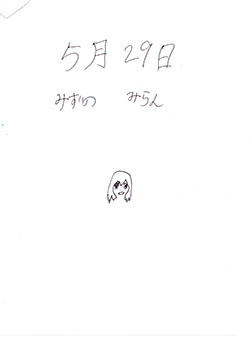 5月29日
みずの みらん